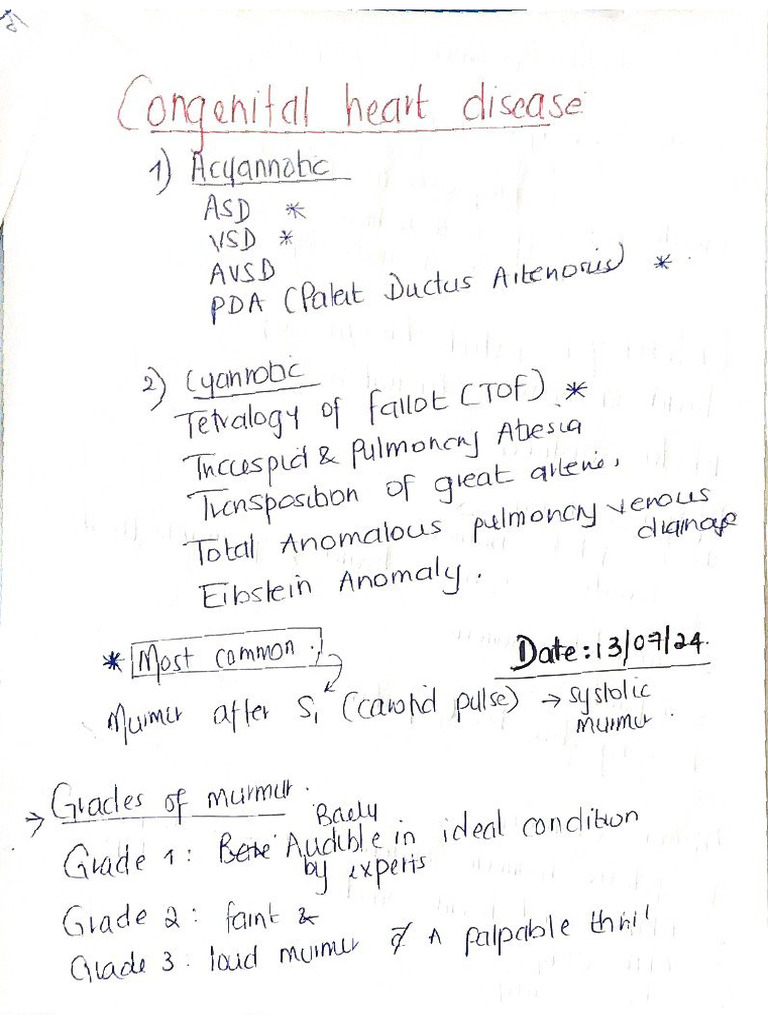 Congenital heart disease
1) Acyannotic
ASD *
VSD *
AVSD
PDA (Patent Ductus Arteriosus) *
2) Cyannotic
Tetralogy of fallot (TOF) *
Triccuspid & Pulmonary Atresia
Transposition of great arteries
Total Anomalous pulmonary venous
drainage
Eibstein Anomaly.
* Most common.
Date: 13/07/24.
Murmur after S1 (carotid pulse) → systolic
murmur.
→ Grades of murmur.
Baely
Grade 1: Audible in ideal condition
by experts
Grade 2: faint &
Grade 3: loud murmur palpable thrill